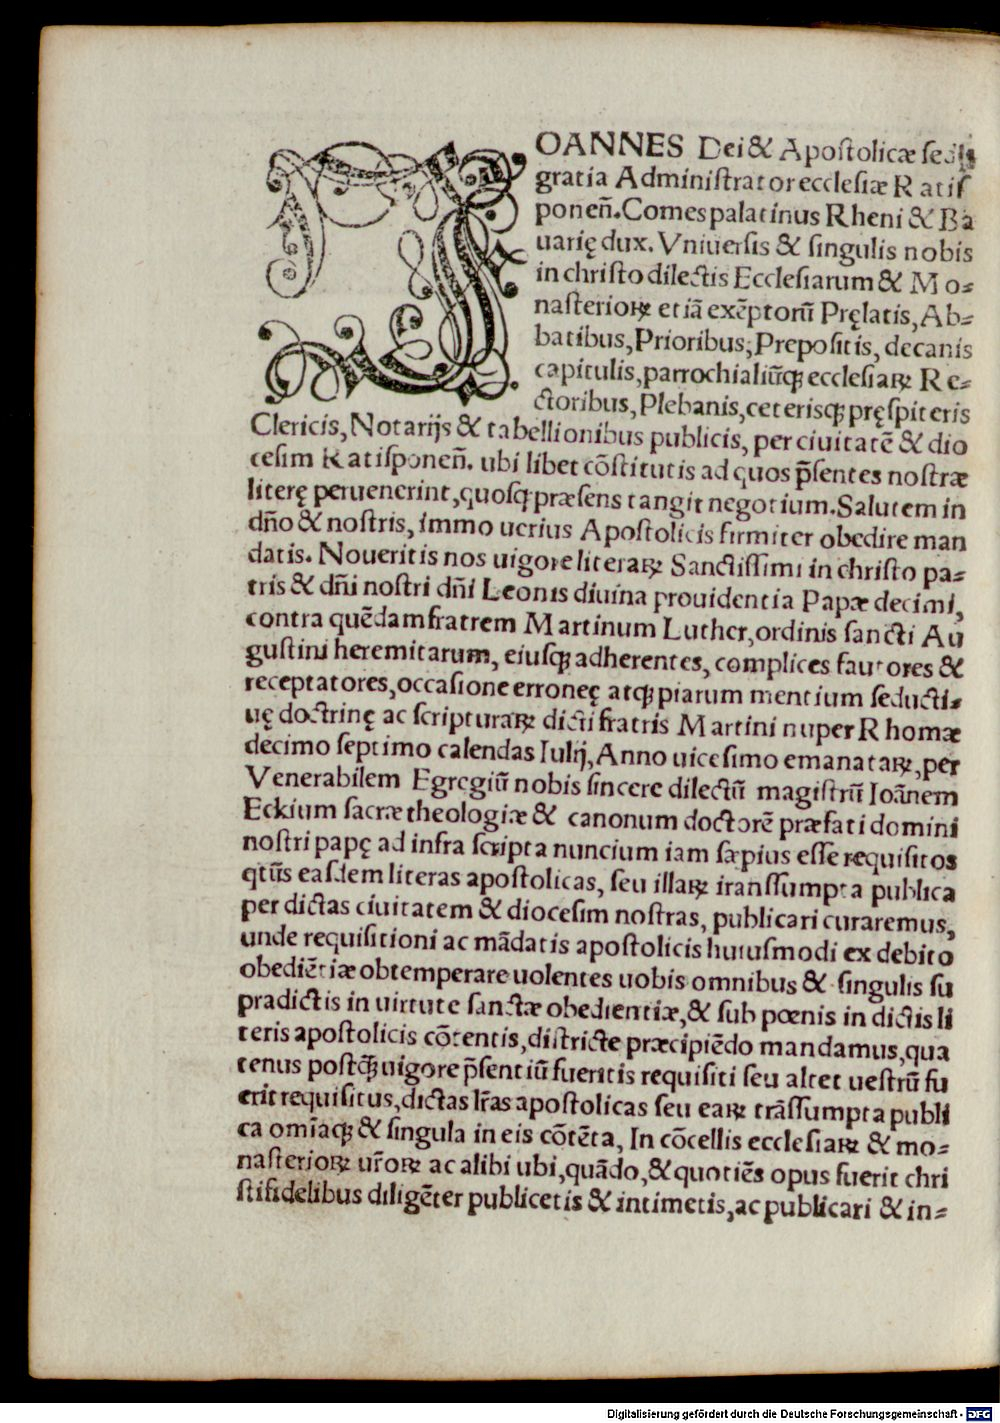 IOANNES Dei & Apostolicæ sedis
gratia Administrator ecclesiæ Ratiſ
ponen̄. Comes palatinus Rheni & Ba
uarię dux. Vniuersis & ſingulis nobis
in chriſto dilectis Eccleſiarum & Mo⸗
naſterioꝝ etiā exēptorū Pręlatis, Ab⸗
batibus, Prioribus, Prepoſitis, decanis
capitulis, parrochialiūqꝫ eccleſiaꝝ Re⸗
ctoribus, Plebanis, ceterisqꝫ pręſpiteris
Clericis, Notarijs & tabellionibus publicis, per ciuitatē & dio
ceſim Ratiſponen̄. ubi libet cōſtitutis ad quos p̄ſentes noſtræ
literę peruenerint, quoſqꝫ præſens tangit negotium. Salutem in
dn̄o & noſtris, immo uerius Apoſtolicis firmiter obedire man
datis. Noueritis nos uigore literaꝝ Sanctiſſimi in chriſto pa⸗
tris & dn̄i noſtri dn̄i Leonis diuina prouidentia Papæ decimi,
contra quēdam fratrem Martinum Luther, ordinis ſancti Au
guſtini heremitarum, eiuſqꝫ adherentes, complices fautores &
receptatores, occaſione erroneę atqꝫ piarum mentium ſeducti⸗
uę doctrinę ac ſcripturaꝝ dicti fratris Martini nuper Rhomæ
decimo ſeptimo calendas Iulij, Anno uiceſimo emanataꝝ, per
Venerabilem Egregiū nobis ſincere dilectū magiſtrū Ioānem
Eckium ſacræ theologiæ & canonum doctorē præfati domini
noſtri papę ad infra ſcripta nuncium iam ſæpius eſſe requiſitos
qtūs eaſdem literas apoſtolicas, ſeu illaꝝ tranſſumpta publica
per dictas ciuitatem & dioceſim noſtras, publicari curaremus,
unde requiſitioni ac mādatis apoſtolicis huiuſmodi ex debito
obediētiæ obtemperare uolentes uobis omnibus & ſingulis ſu
pradictis in uirtute ſanctæ obedientiæ, & ſub pœnis in dictis li
teris apoſtolicis cōtentis, diſtricte præcipiēdo mandamus, qua
tenus poſtqꝫ̄ uigore p̄ſentiū fueritis requiſiti ſeu alter ueſtrū fu
erit requiſitus, dictas lr̄as apoſtolicas ſeu eaꝝ trāſſumpta publi
ca omīaqꝫ & ſingula in eis cōtēta, In cōcellis eccleſiaꝝ & mo⸗
naſterioꝝ ur̄oꝝ ac alibi ubi, quādo, & quotiēs opus fuerit chri
ſtifidelibus diligēter publicetis & intimetis, ac publicari & in⸗
Digitalisierung gefördert durch die Deutsche Forschungsgemeinschaft - DFG